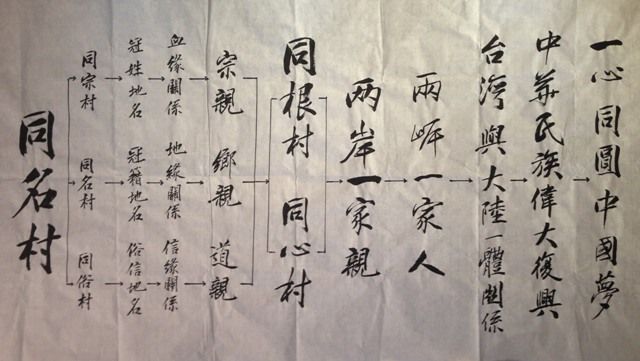 同名村
同宗村
同名村
同俗村
冠姓地名
冠籍地名
俗信地名
血緣關係
地緣關係
信緣關係
宗親
鄉親
道親
同根村
同心村
两岸一家親
兩岸一家人
台灣與大陸一體關係
中華民族偉大復興
一心同圓中國夢